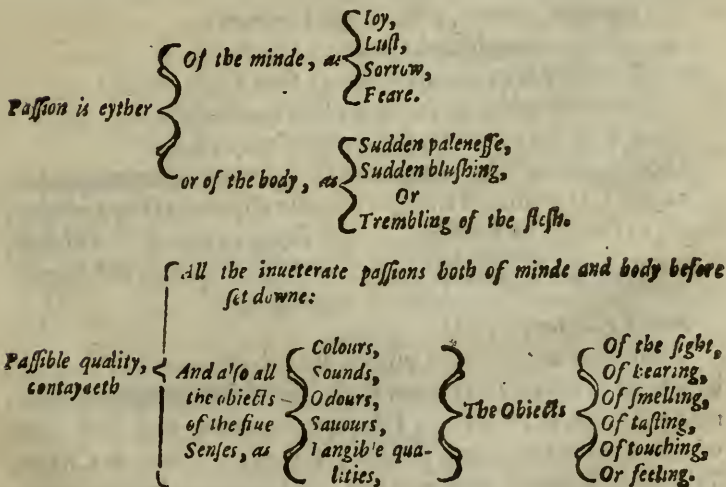 Passion is eyther
Of the minde, as
Ioy,
Lust,
Sorrow,
Feare.
or of the body, as
Sudden palenesse,
Sudden blushing,
Or
Trembling of the flesh.
Passible quality,
contayneth
All the inueterate passions both of minde and body before
set downe:
And also all
the obiects
of the fiue
Senses, as
Colours,
Sounds,
Odours,
Sauours,
Tangible qua-
lities,
The Obiects
Of the sight,
Of hearing,
Of smelling,
Of tasting,
Of touching,
Or feeling.